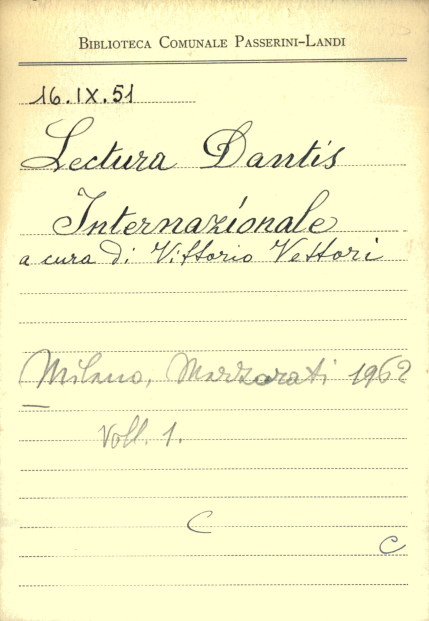 BIBLIOTECA COMUNALE PASSERINI-LANDI
16.IX.51
Lectura Dantis
Internazionale
a cura di Vittorio Vettori
Milano, Marzorati 1962
Voll. 1.
C
C